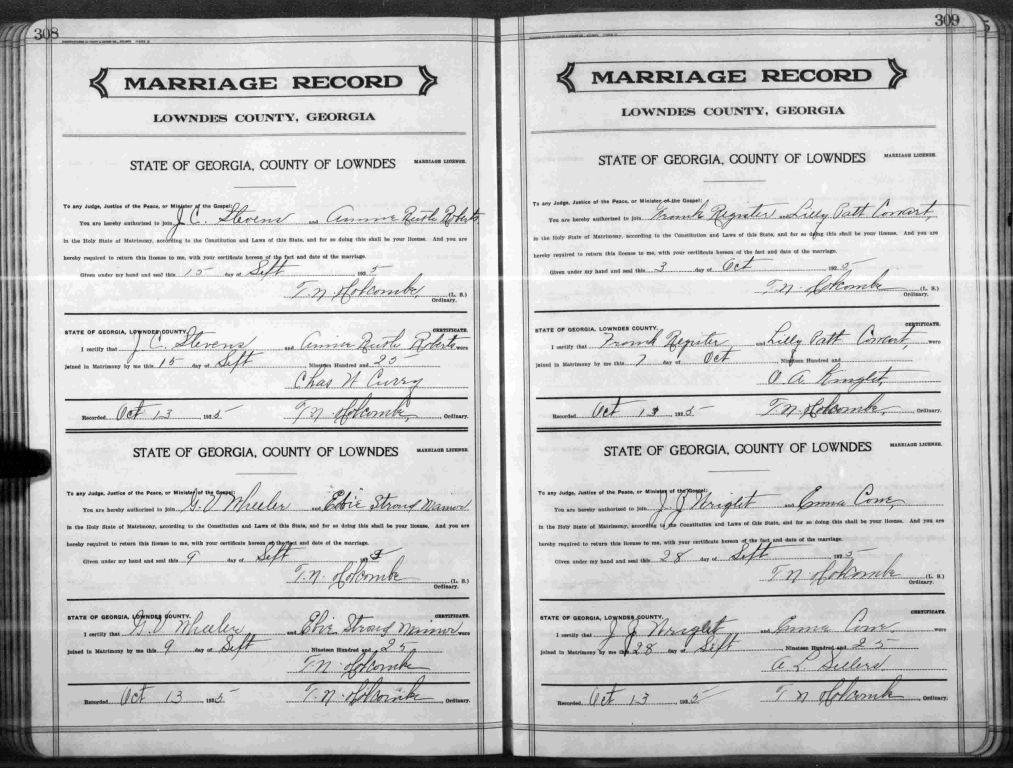 308
MARRIAGE RECORD
LOWNDES COUNTY, GEORGIA
STATE OF GEORGIA, COUNTY OF LOWNDES MARRIAGE LICENSE.
To any Judge, Justice of the Peace, or Minister of the Gospel:
You are hereby authorized to join J. C. Stevens and Annie Ruth Roberts
in the Holy State of Matrimony, according to the Constitution and Laws of this State, and for so doing this shall be your license. And you are
hereby required to return this license to me, with your certificate hereon of the fact and date of the marriage.
Given under my hand and seal this 15 day of Sept , 1925
T. N. Holcombe, (L. S.)
Ordinary.
STATE OF GEORGIA, LOWNDES COUNTY. CERTIFICATE.
I certify that J. C. Stevens and Annie Ruth Roberts were
joined in Matrimony by me this 15 day of Sept Nineteen Hundred and 25
Chas H Curry
Recorded Oct 13 , 1925 T. N. Holcombe, Ordinary.
STATE OF GEORGIA, COUNTY OF LOWNDES MARRIAGE LICENSE.
To any Judge, Justice of the Peace, or Minister of the Gospel:
You are hereby authorized to join G. V Wheeler and Stroud
in the Holy State of Matrimony, according to the Constitution and Laws of this State, and for so doing this shall be your license. And you are
hereby required to return this license to me, with your certificate hereon of the fact and date of the marriage.
Given under my hand and seal this 9 day of Sept , 192
T. N. Holcombe (L. S.)
Ordinary.
STATE OF GEORGIA, LOWNDES COUNTY. CERTIFICATE.
I certify that G. V Wheeler and Stroud were
joined in Matrimony by me this 9 day of Sept , Nineteen Hundred and 25
T. N. Holcombe
Recorded Oct 13 , 1925 T. N. Holcombe Ordinary.
309
MARRIAGE RECORD
LOWNDES COUNTY, GEORGIA
STATE OF GEORGIA, COUNTY OF LOWNDES MARRIAGE LICENSE.
To any Judge, Justice of the Peace, or Minister of the Gospel:
You are hereby authorized to join Frank Register and Lilly Patt Cowart,
in the Holy State of Matrimony, according to the Constitution and Laws of this State, and for so doing this shall be your license. And you are
hereby required to return this license to me, with your certificate hereon of the fact and date of the marriage.
Given under my hand and seal this 3 day of Oct , 1925
T. N. Holcombe (L. S.)
Ordinary.
STATE OF GEORGIA, LOWNDES COUNTY. CERTIFICATE.
I certify that Frank Register and Lilly Patt Cowart, were
joined in Matrimony by me this 7 day of Oct , Nineteen Hundred and
O. A. Knight,
Recorded Oct 13 , 1925 T. N. Holcombe, Ordinary.
STATE OF GEORGIA, COUNTY OF LOWNDES MARRIAGE LICENSE.
To any Judge, Justice of the Peace, or Minister of the Gospel:
You are hereby authorized to join J. J. Wright and Emma Cone,
in the Holy State of Matrimony, according to the Constitution and Laws of this State, and for so doing this shall be your license. And you are
hereby required to return this license to me, with your certificate hereon of the fact and date of the marriage.
Given under my hand and seal this 28 day of Sept , 1925
T. N. Holcombe (L. S.)
Ordinary.
STATE OF GEORGIA, LOWNDES COUNTY. CERTIFICATE.
I certify that J. J. Wright and Emma Cone, were
joined in Matrimony by me this 28 day of Sept , Nineteen Hundred and 25
A. L.
Recorded Oct 13 , 1925 T. N. Holcombe Ordinary.